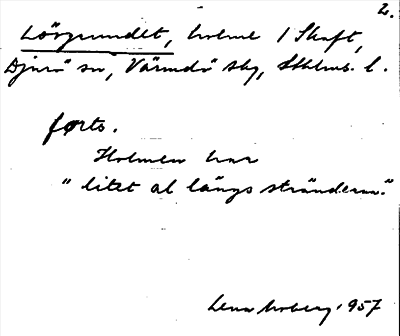 2.
Lövgrundet, holme i Skaft,
Djurö sn, Värmdö skg, Sthlms. l.
forts.
Holmen har
"litet al längs stränderna."
Lena Moberg 1957